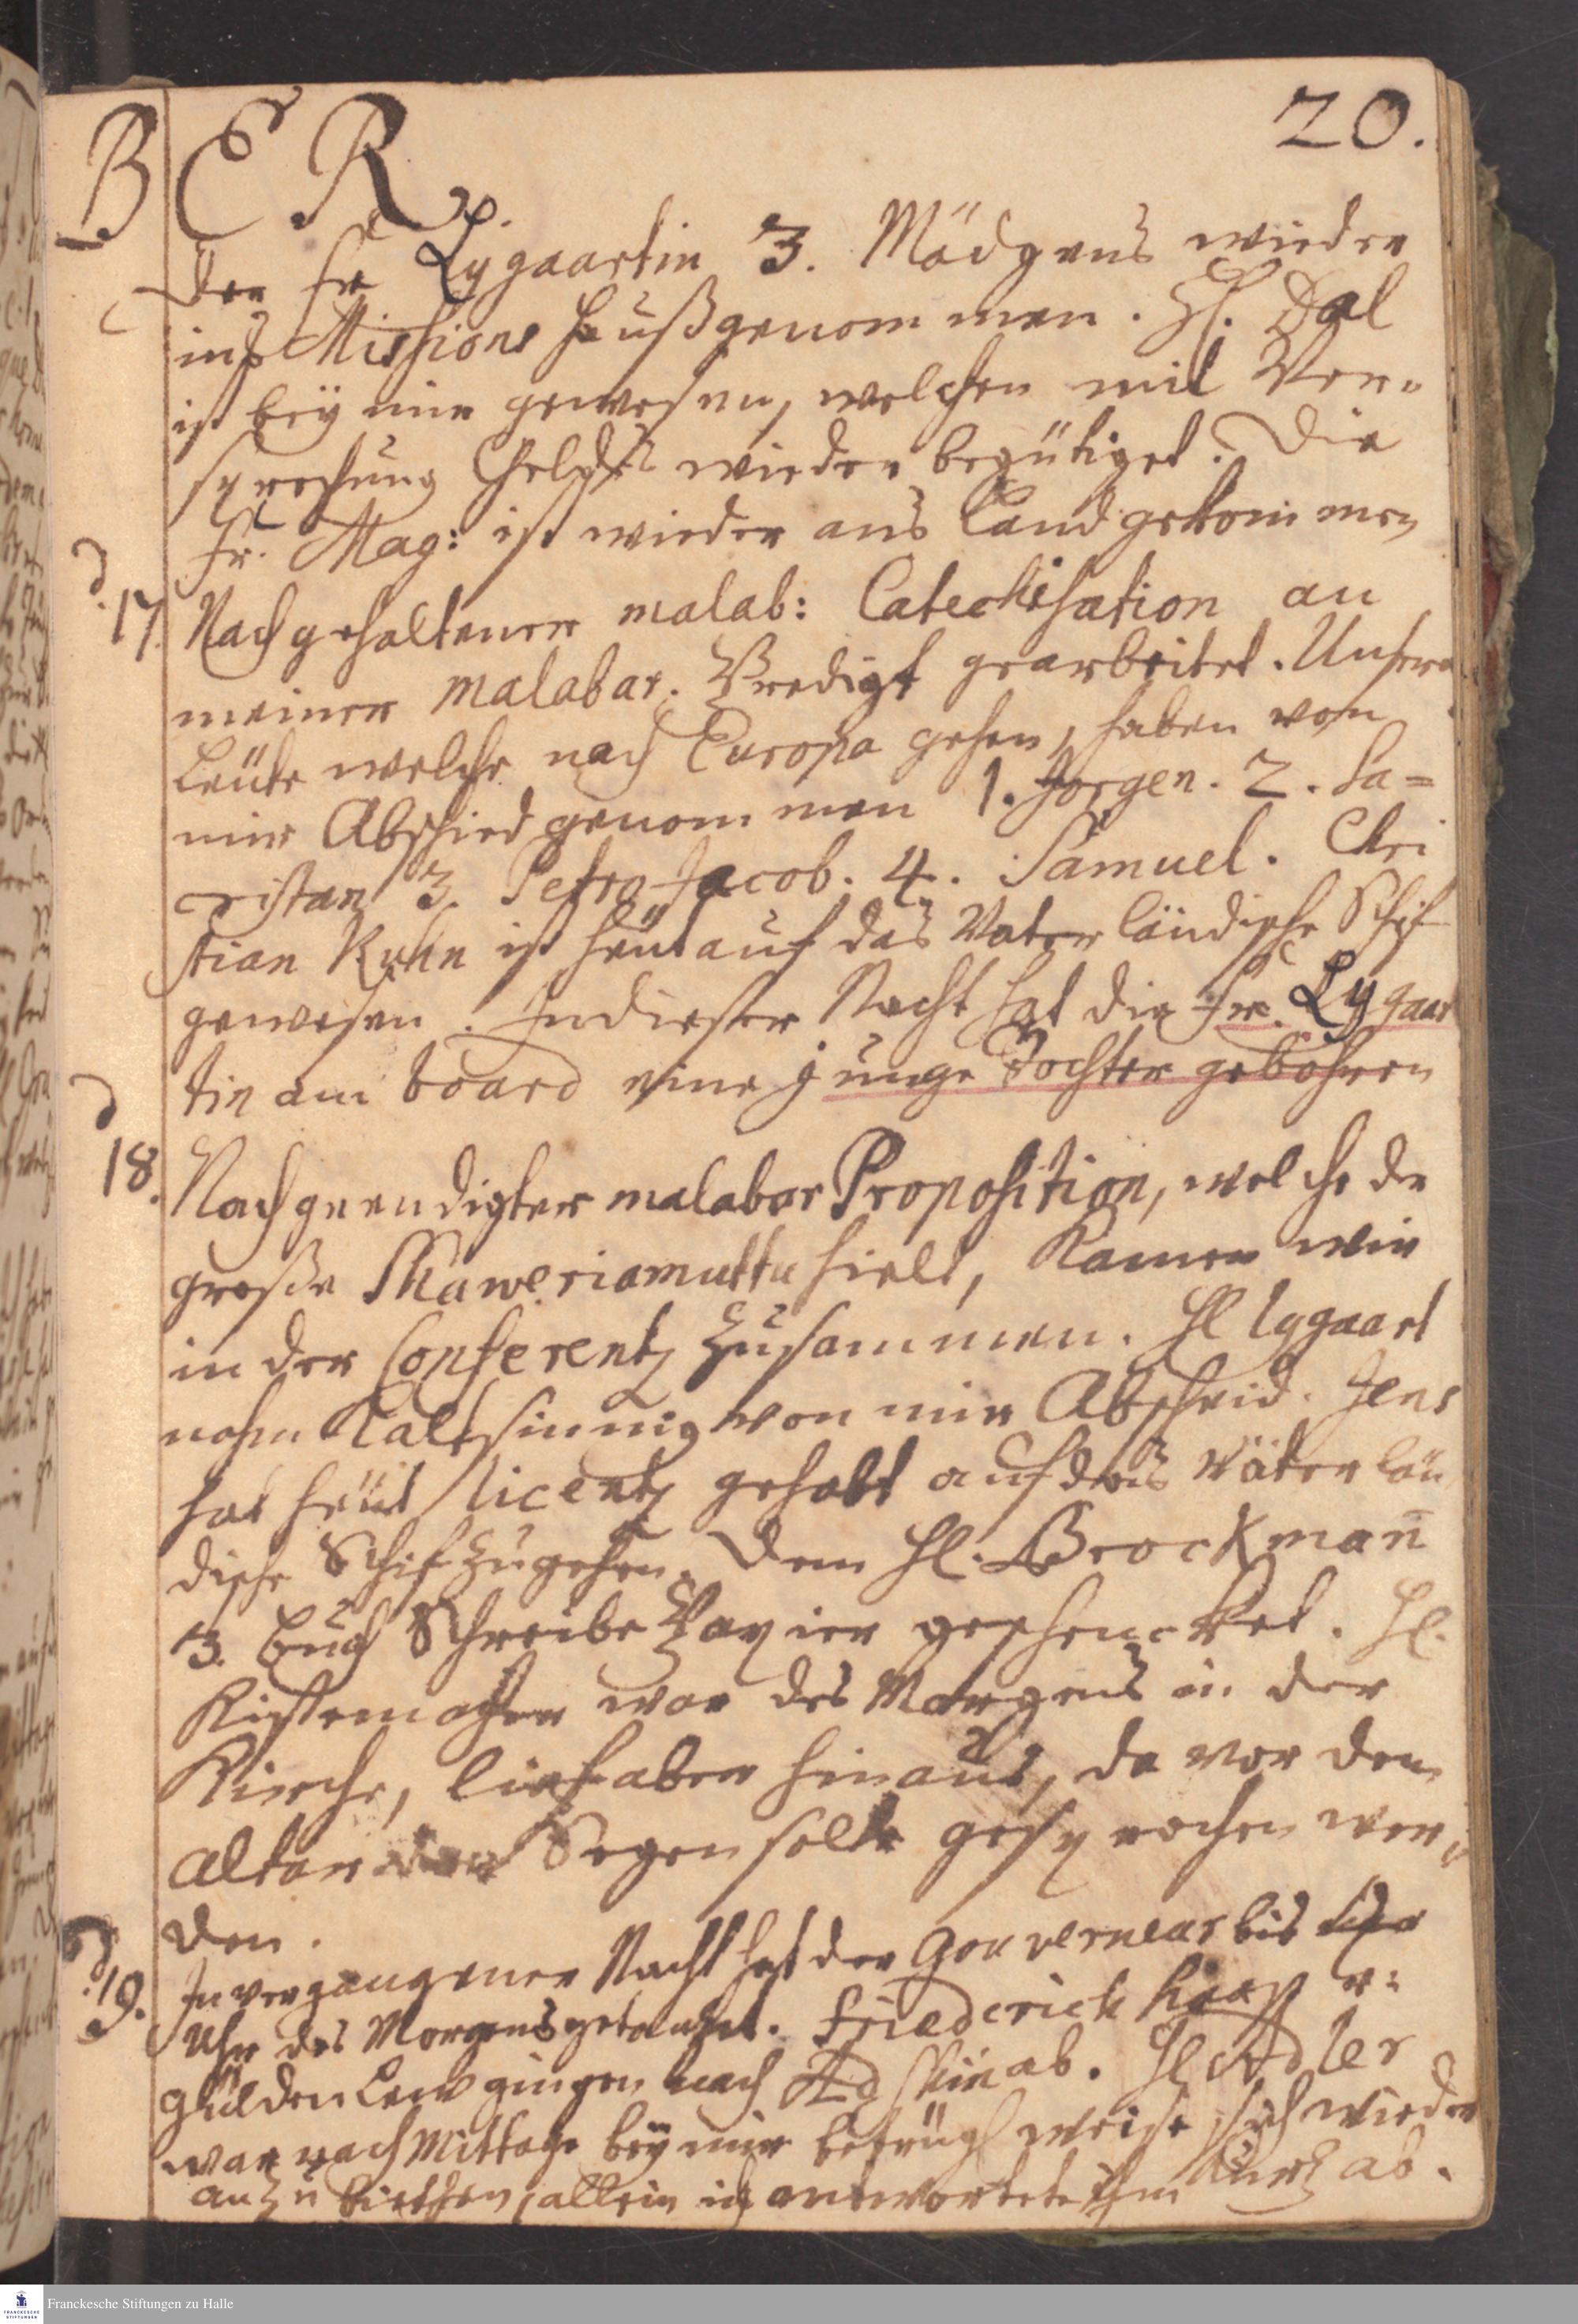 BER.
20.
Der Fr Lygaartin 3. Mädgens wieder
ins Missions Hauß genommen. H. Dal
ist bey mir gewesen, welchen mit Ver-
sprechung Geldes wieder begütiget. Die
Fr. Mag: ist wieder ans Land gekommen
d. 17. Nach gehaltener malab: Catechisation an
meiner malabar. Predigt gearbeitet. Unsere
Leute welche nach Europa gehen, haben von
mir Abschied genommen 1. Jorgen. 2. Sa=
ristan 3. Petro Jacob. 4. Samuel. Chri
stian Kuhn ist heut auf das Vaterländische Schif
gewesen. In dieser Nacht hat die Fr. Lygaar
tin am board eine junge Tochter gebohren
d. 18. Nach geendigter malabar Proposition, welche de
große Schaweriamuttu hielt, kamen wir
in der Conferentz zusammen. H Lygaart
nahm kaltsinnig von mir Abscheid. Jens
hat heut licentz gehabt auf das Väterlän
dische Schif zu gehen. Dem H. Brockman̄
3. Buch Schreibe Papier geschencket. H.
Kistemacher war des Morgens in der
Kirche, lief aber hinaus, da vor dem
Altar der Segen solte gesprochen wer-
den.
d. 19. In vergangener Nacht hat der Gouverneur bis
Uhr des Morgens getantzet. Friederich
Gülden Leuw gingen nach ab. H Adler
war nach Mittage bey mir betrügl weise sich wieder
an zu allein ich antwortete ihm kurtz ab.
Franckesche Stiftungen zu Halle